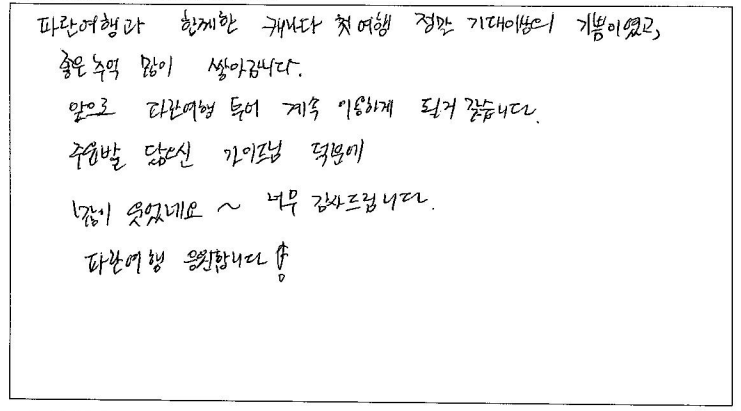 파란여행과 함께한 캐나다 첫여행 정말 기대이상의 기쁨이였고,
좋은 추억 많이 쌓아갑니다.
앞으로 파란여행 투어 계속 이용하게 될거 같습니다.
주윤발 닮으신 가이드님 덕분에
많이 웃었네요 ~ 너무 감사드립니다.
파란여행 응원합니다!